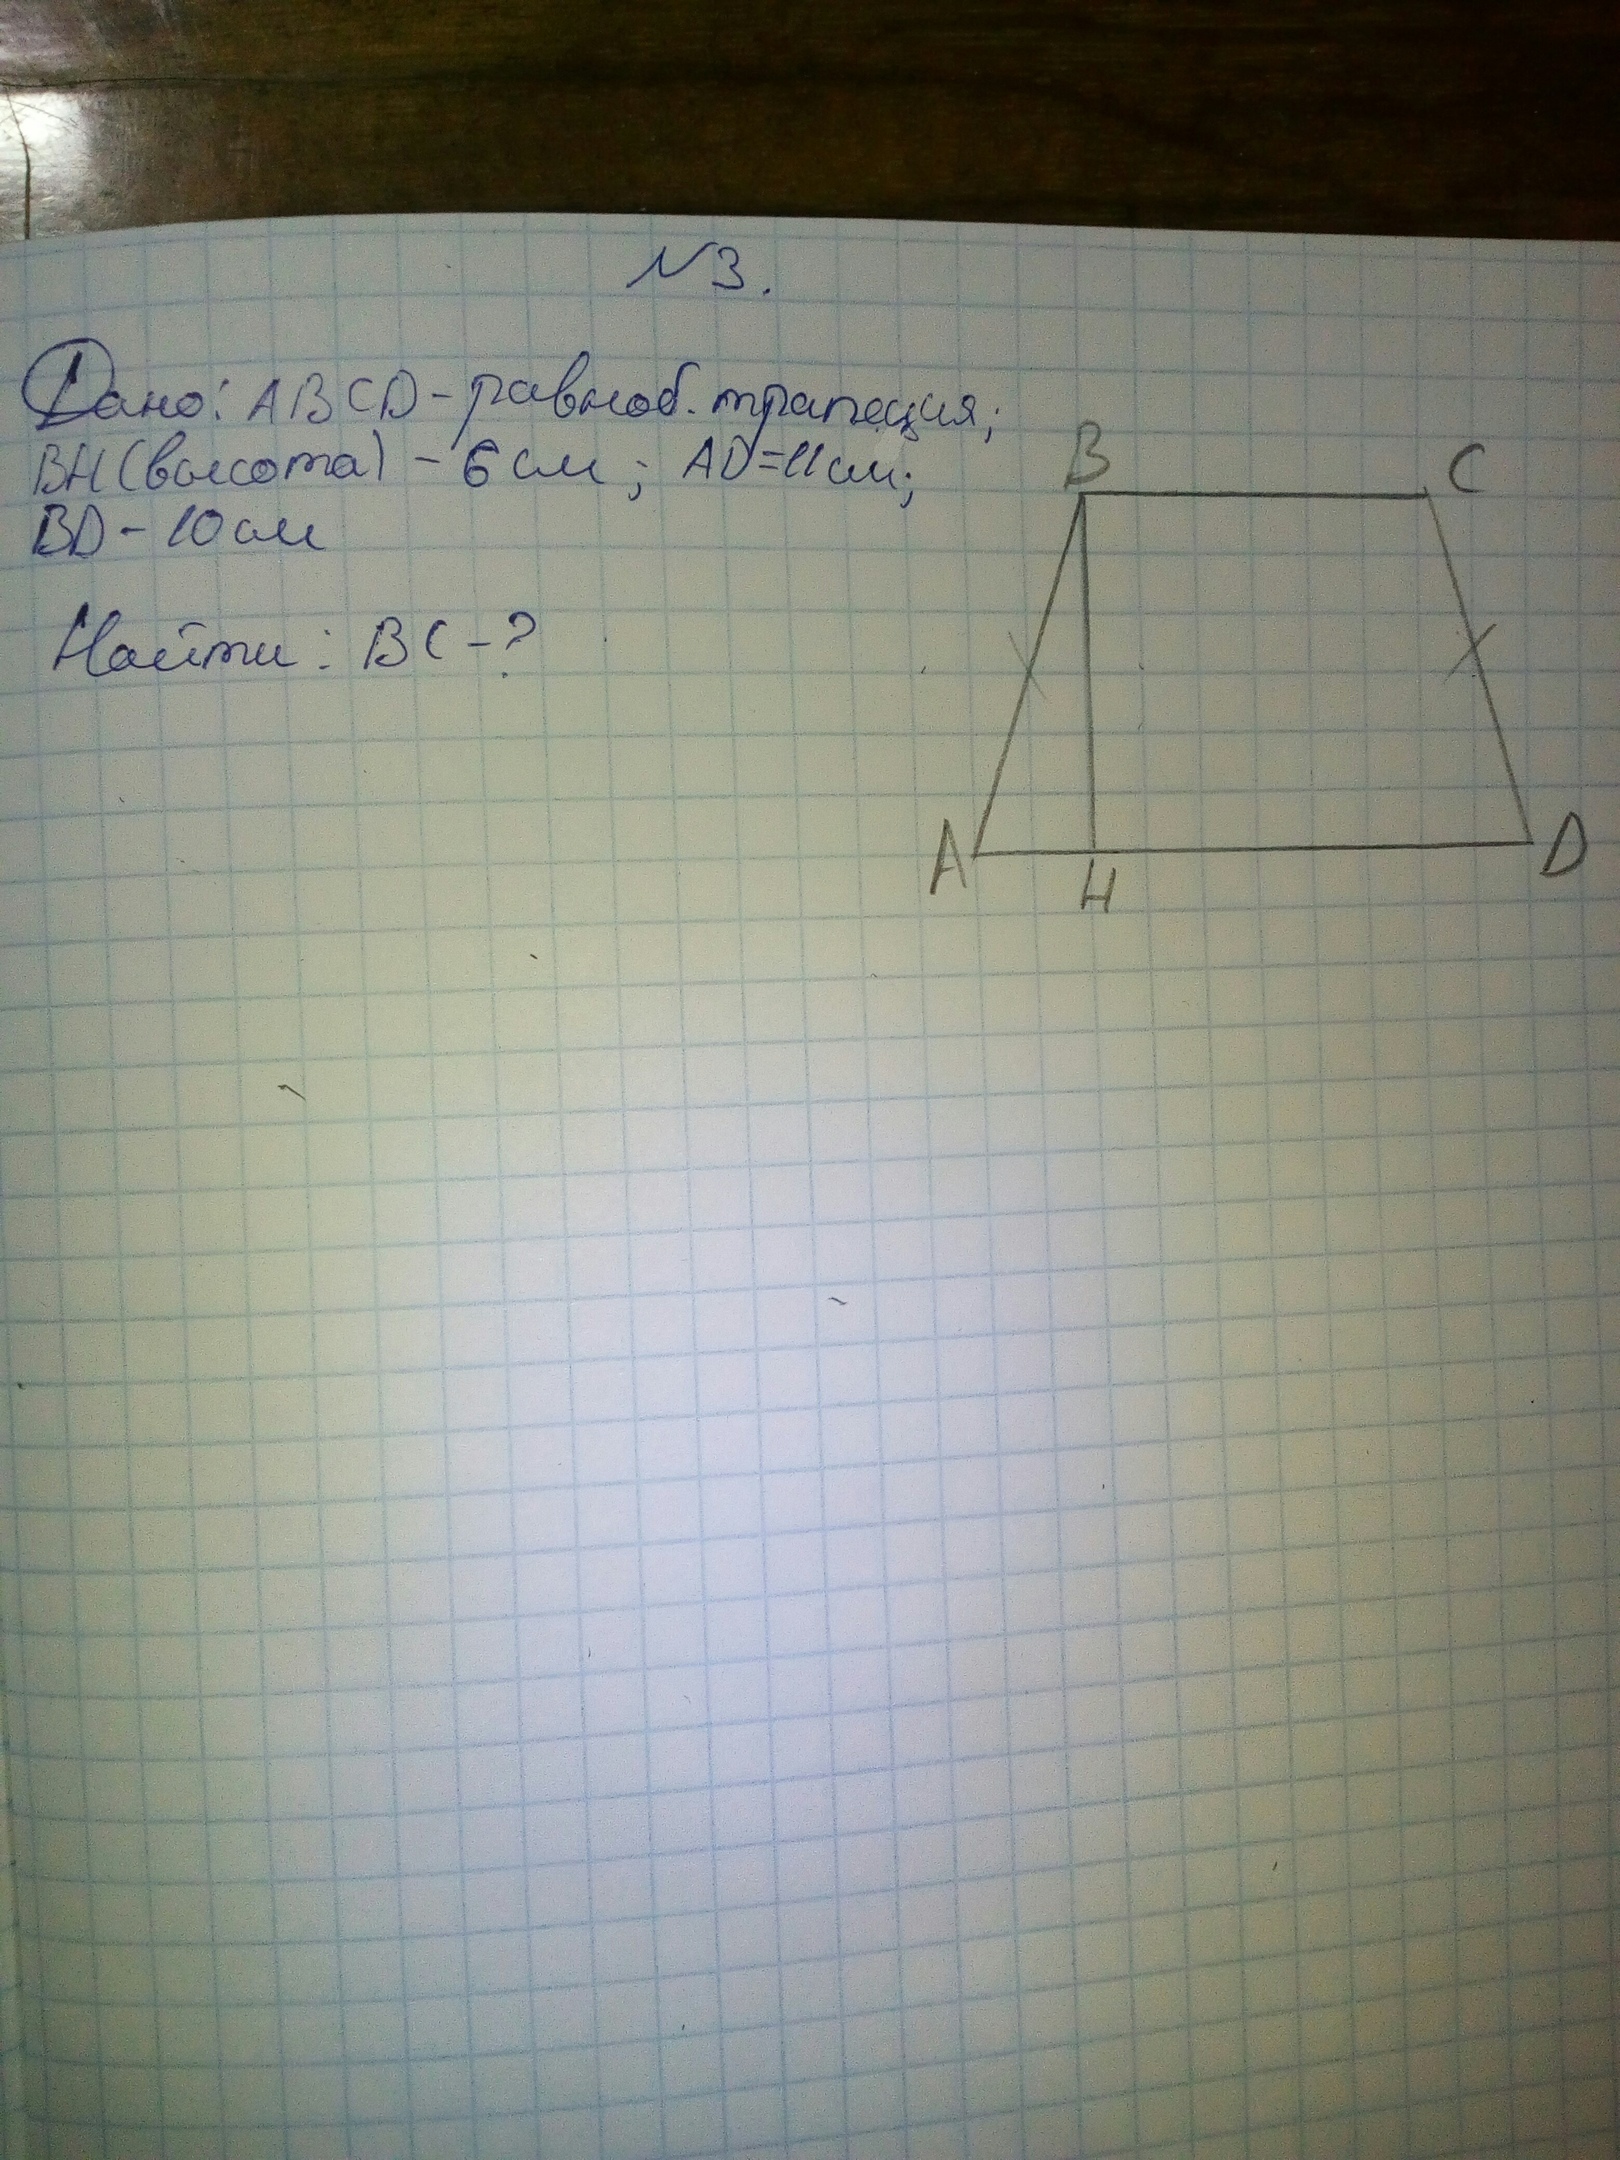 №3.
Дано: ABCD - равноб. трапеция;
BH (высота) - 6 см; AD=11см;
BD - 10 см
Найти: BC - ?
B
C
A
H
D